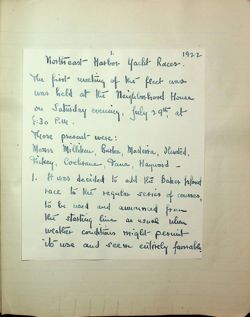 1.
1922
Northeast Harbor Yacht Races.
The first meeting of the fleet was
was held at the Neighborhood House
on Saturday evening, July 29th at
8:30 P.M.
Those present were:
Morris Milliken, Madeira,
Cochrane Hayward -
1. It was decided to add the Bakers Island
race to the regular series of courses,
to be used and announced from
the starting line as usual when
weather conditions might permit
its use and seem entirely favorable